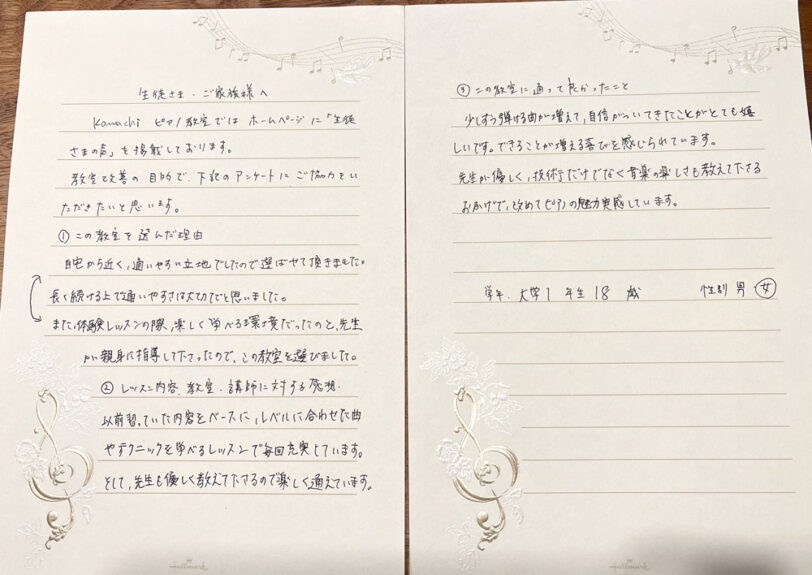 生徒さま・ご家族様へ
Kamachi ピアノ教室では ホームページに「生徒
さまの声」を掲載しております。
教室改善の目的で、下記のアンケートにご協力をい
ただきたいと思います。
① この教室を選んだ理由
自宅から近く、通いやすい立地でしたので選ばせて頂きました。
長く続ける上で通いやすさは大切だと思いました。
また、体験レッスンの際、楽しく学べる環境だったのと、先生
が親身に指導して下さったので、この教室を選びました。
② レッスン内容、教室・講師に対する感想.
以前習っていた内容をベースに、レベルに合わせた曲
やテクニックを学べるレッスンで毎回充実しています。
そして、先生も優しく教えて下さるので楽しく通えています。
Hallmark
③ この教室に通って良かったこと
少しずつ弾ける曲が増えて、自信がついてきたことがとても嬉
しいです。できることが増える喜びを感じられています。
先生が優しく、技術だけでなく音楽の楽しさも教えて下さる
おかげで、改めてピアノの魅力実感しています。
学年. 大学1年生 18 歳 性別 男・女
Hallmark